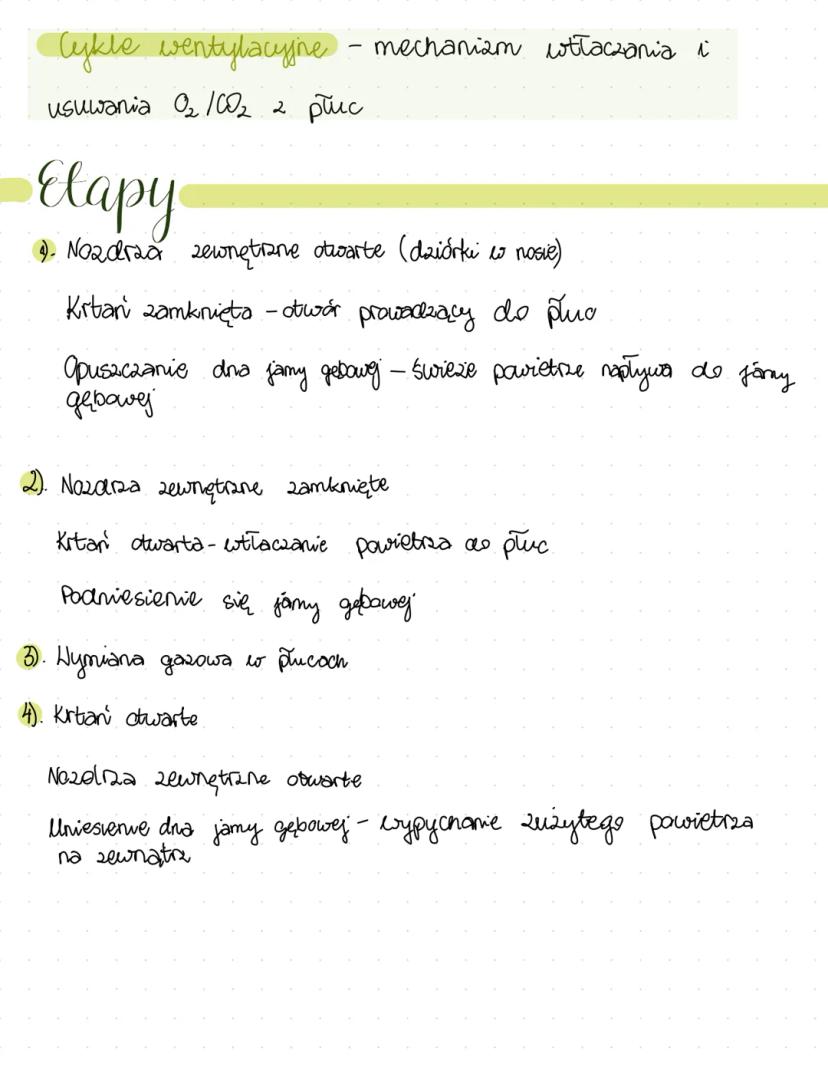 Cykle wentylacyjne - mechanizm wtłaczania i
usuwania O₂/CO₂ z płuc
Etapy
1). Nozdrza zewnętrzne otwarte (dziórki w nosie)
Krtań zamknięta - otwór prowadzący do płuc
Opuszczanie dna jamy gębowej - świeże powietrze napływa do jamy
gębowej
2). Nozdrza zewnętrzne zamknięte
Krtań otwarta - wtłaczanie powietrza do płuc
Podniesienie się jamy gębowej
3). Wymiana gazowa w płucach
4). Krtań otwarte
Nozdrza zewnętrzne otwarte
Uniesienie dna jamy gębowej - wypychanie zużytego powietrza
na zewnątrz